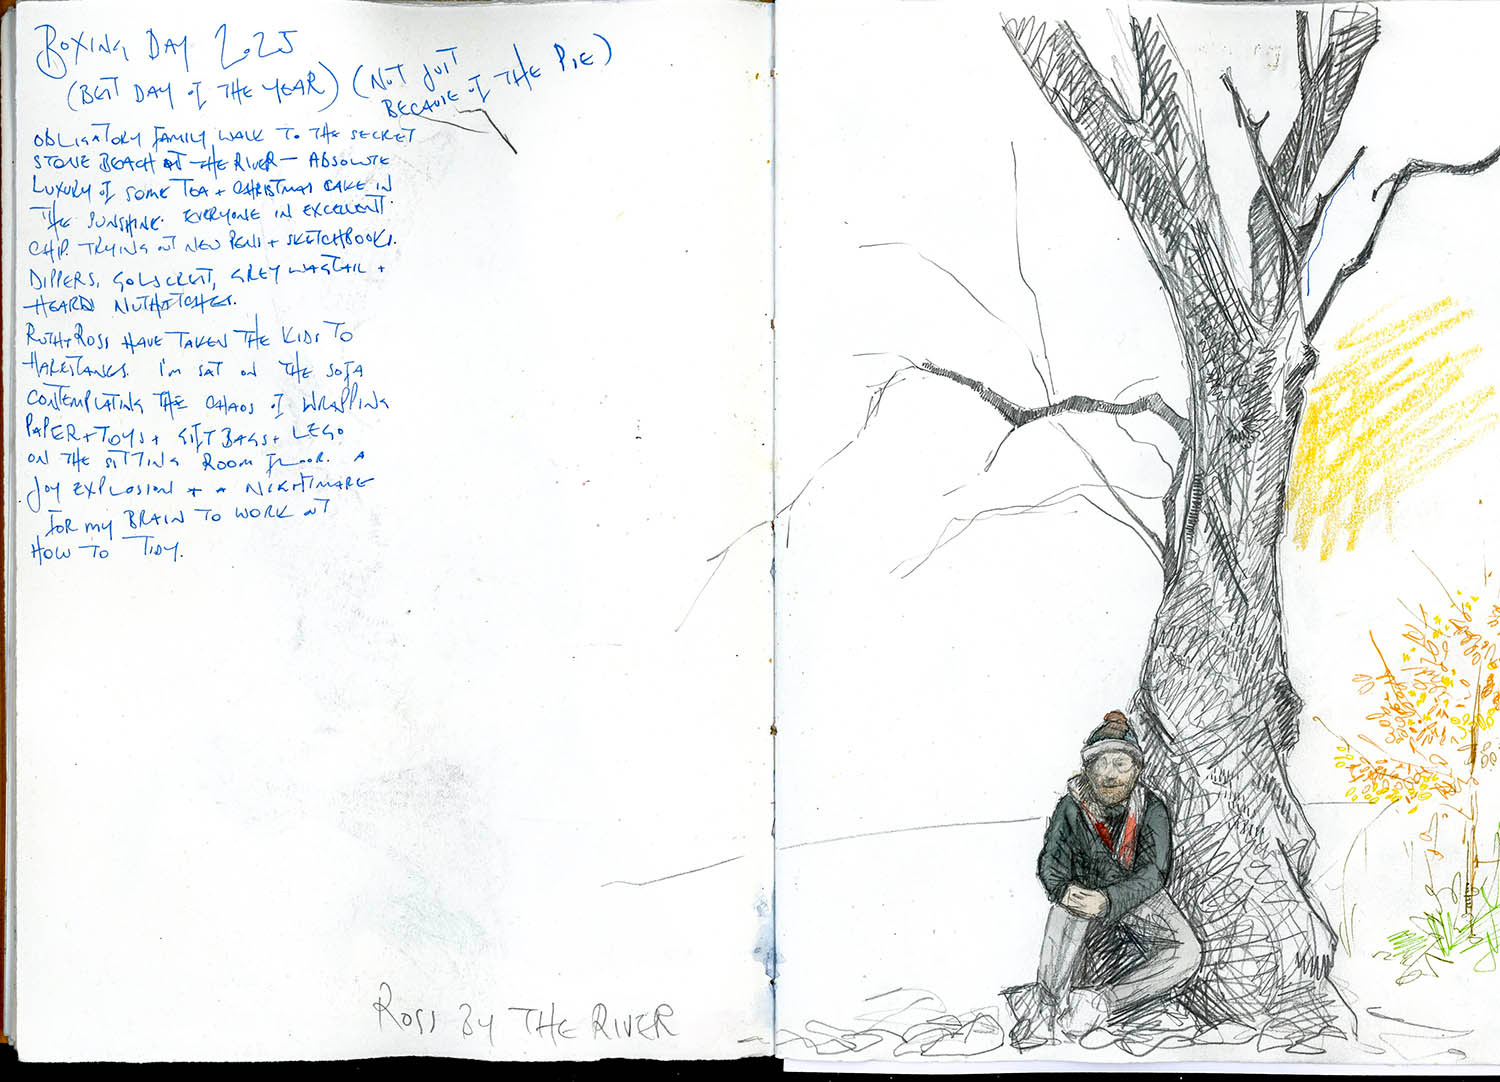 BOXING DAY 2025
(BEST DAY OF THE YEAR) (NOT JUST
BECAUSE OF THE PIE)
OBLIGATORY FAMILY WALK TO THE SECRET
STONE BEACH AT THE RIVER – ABSOLUTE
LUXURY OF SOME TEA + CHRISTMAS CAKE IN
THE SUNSHINE. EVERYONE IN EXCELLENT
CHIP. TRYING OUT NEW PENS + SKETCHBOOKS.
DIPPERS, GOLDCREST, GREY WAGTAIL +
HEARD NUTHATCHES.
RUTH + ROSS HAVE TAKEN THE KIDS TO
HARESTANES. I'M SAT ON THE SOFA
CONTEMPLATING THE CHAOS OF WRAPPING
PAPER + TOYS + GIFT BAGS + LEGO
ON THE SITTING ROOM FLOOR. A
JOY EXPLOSION + A NIGHTMARE
FOR MY BRAIN TO WORK OUT
HOW TO TIDY.
ROSS BY THE RIVER